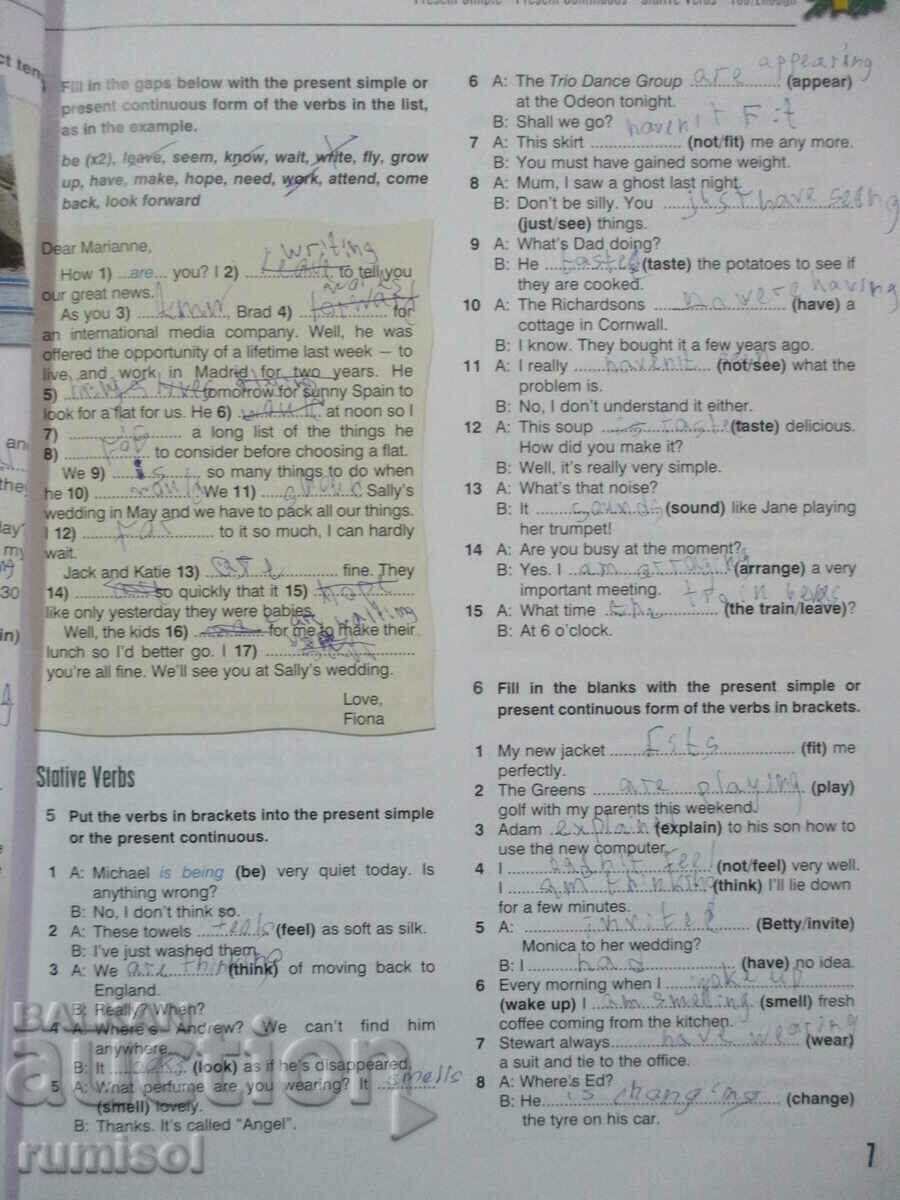 Present Simple - Present Continuous - Stative Verbs - Too/Enough
Fill in the gaps below with the present simple or
present continuous form of the verbs in the list,
as in the example.
be (x2), leave, seem, know, wait, write, fly, grow
up, have, make, hope, need, work, attend, come
back, look forward
Dear Marianne,
writing
How 1) ...are... you? I 2) ............ to tell you
our great news.
works
As you 3) ... know ..., Brad 4) ... forward ... for
an international media company. Well, he was
offered the opportunity of a lifetime last week – to
live and work in Madrid for two years. He
5) ............ tomorrow for sunny Spain to
look for a flat for us. He 6) ............ at noon so I
7) ............ a long list of the things he
8) ............ to consider before choosing a flat.
We 9) ... is ... so many things to do when
he 10) ............ We 11) ............ Sally's
wedding in May and we have to pack all our things.
I 12) ............ to it so much, I can hardly
wait.
Jack and Katie 13) ... are ... fine. They
14) ............ so quickly that it 15) ... hope ...
like only yesterday they were babies.
waiting
Well, the kids 16) ............ for me to make their
lunch so I'd better go. I 17) ............
you're all fine. We'll see you at Sally's wedding.
Love,
Fiona
Stative Verbs
5 Put the verbs in brackets into the present simple
or the present continuous.
1 A: Michael is being (be) very quiet today. Is
anything wrong?
B: No, I don't think so.
2 A: These towels ... feels ... (feel) as soft as silk.
B: I've just washed them.
3 A: We ... are thinking ... (think) of moving back to
England.
B: Really? When?
4 A: Where's Andrew? We can't find him
anywhere.
B: It ... looks ... (look) as if he's disappeared.
5 A: What perfume are you wearing? It ... smells
(smell) lovely.
B: Thanks. It's called "Angel".
appearing
6 A: The Trio Dance Group ... are ... (appear)
at the Odeon tonight.
B: Shall we go?
haven't Fit
7 A: This skirt ............ (not/fit) me any more.
B: You must have gained some weight.
8 A: Mum, I saw a ghost last night.
B: Don't be silly. You ... just have seeng
(just/see) things.
9 A: What's Dad doing?
B: He ... tastes ... (taste) the potatoes to see if
they are cooked.
10 A: The Richardsons ... havere having (have) a
cottage in Cornwall.
B: I know. They bought it a few years ago.
11 A: I really ... haven't seen ... (not/see) what the
problem is.
B: No, I don't understand it either.
12 A: This soup ... is taste (taste) delicious.
How did you make it?
B: Well, it's really very simple.
13 A: What's that noise?
B: It ... sounds (sound) like Jane playing
her trumpet!
14 A: Are you busy at the moment?
B: Yes. I ... am arraging (arrange) a very
important meeting.
train
15 A: What time ... the ... (the train/leave)?
B: At 6 o'clock.
6 Fill in the blanks with the present simple or
present continuous form of the verbs in brackets.
1 My new jacket ... fits ... (fit) me
perfectly.
2 The Greens ... are playing ... (play)
golf with my parents this weekend.
3 Adam ... explain (explain) to his son how to
use the new computer.
4 I ............ feel (not/feel) very well.
I ... am thinking (think) I'll lie down
for a few minutes.
5 A: ... invited ... (Betty/invite)
Monica to her wedding?
B: I ... has ... (have) no idea.
6 Every morning when I ... wake up
(wake up) I ... am smelling (smell) fresh
coffee coming from the kitchen.
7 Stewart always ... have wearing (wear)
a suit and tie to the office.
8 A: Where's Ed?
B: He ... is changing ... (change)
the tyre on his car.
7
BALKAN
auction
rumisol